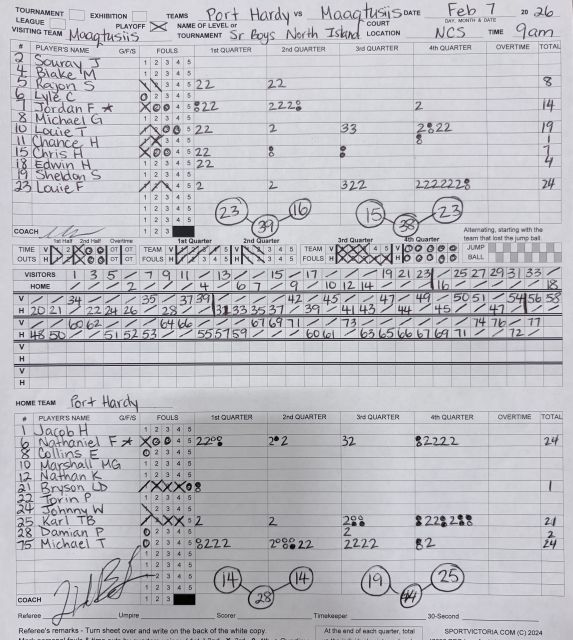 TOURNAMENT EXHIBITION TEAMS Port Hardy VS Maaqtusiis DATE Feb 7 20 26
LEAGUE PLAYOFF NAME OF LEVEL or COURT DAY, MONTH & DATE
VISITING TEAM Maaqtusiis TOURNAMENT Sr Boys North Island LOCATION NCS TIME 9am
# PLAYER'S NAME G/F/S FOULS 1st QUARTER 2nd QUARTER 3rd QUARTER 4th QUARTER OVERTIME TOTAL
2 Souray J 1 2 3 4 5
4 Blake M 1 2 3 4 5
5 Rajon S 3 4 5 22 22 8
6 Lyle C 2 3 4 5
7 Jordan F ★ 4 5 22 222 2 14
8 Michael G 1 2 3 4 5
10 Louie T 5 22 2 33 2 22 19
11 Chance H 1
15 Chris H 4 5 22 7
18 Edwin H 1 2 3 4 5 22 4
19 Sheldon S 1 2 3 4 5
23 Louie F 4 5 2 2 322 222222 24
1 2 3 4 5
1 2 3 4 5
23 39 16 15 38 23
COACH 1 2 3
Alternating, starting with the team that lost the jump ball.
1st Half 2nd Half Overtime 1st Quarter 2nd Quarter 3rd Quarter 4th Quarter
TIME OUTS V H OT OT TEAM FOULS V H TEAM FOULS V H JUMP BALL
VISITORS 1 3 5 7 9 11 13 15 17 19 21 23 25 27 29 31 33
HOME 2 4 6 7 9 10 12 14 16 18
V 34 35 37 39 42 45 47 49 50 51 54 56 58
H 20 21 22 24 26 28 31 33 35 37 39 41 43 44 45 47
V 60 62 64 66 67 69 71 73 74 76 77
H 48 50 51 52 53 55 57 59 60 61 63 65 66 67 69 71 72
V
H
V
H
HOME TEAM Port Hardy
# PLAYER'S NAME G/F/S FOULS 1st QUARTER 2nd QUARTER 3rd QUARTER 4th QUARTER OVERTIME TOTAL
1 Jacob H 1 2 3 4 5
6 Nathaniel F ★ 4 5 22 2 2 32 2222 24
8 Collins E 2 3 4 5
10 Marshall MG 1 2 3 4 5
12 Nathan K 1 2 3 4 5
21 Bryson 1
22 Torin P 1 2 3 4 5
24 Johnny W 2 3 4 5
25 Karl TB 5 2 2 2 21
28 Damian P 2 3 4 5 2 2
75 Michael T 3 4 5 222 2 22 2222 2 24
1 2 3 4 5
1 2 3 4 5
1 2 3 4 5
14 28 14 19 44 25
COACH 1 2 3
Referee Umpire Scorer Timekeeper 30-Second
Referee's remarks - Turn sheet over and write on the back of the white copy.
At the end of each quarter, total
SPORTVICTORIA.COM (C) 2024